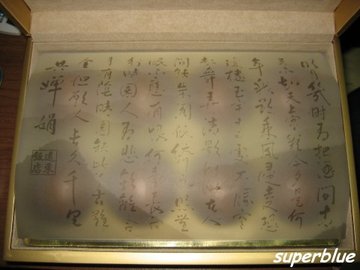 明月幾時有把酒問青天
不知天上宮闕今夕是何
年我欲乘風歸去又恐
瓊樓玉宇高處不勝寒
起舞弄清影何似在人
間轉朱閣低綺戶照無
眠不應有恨何事長向
別時圓人有悲歡離合
月有陰晴圓缺此事古難
全但願人長久千里
共嬋娟
遠東
飯店
superblue